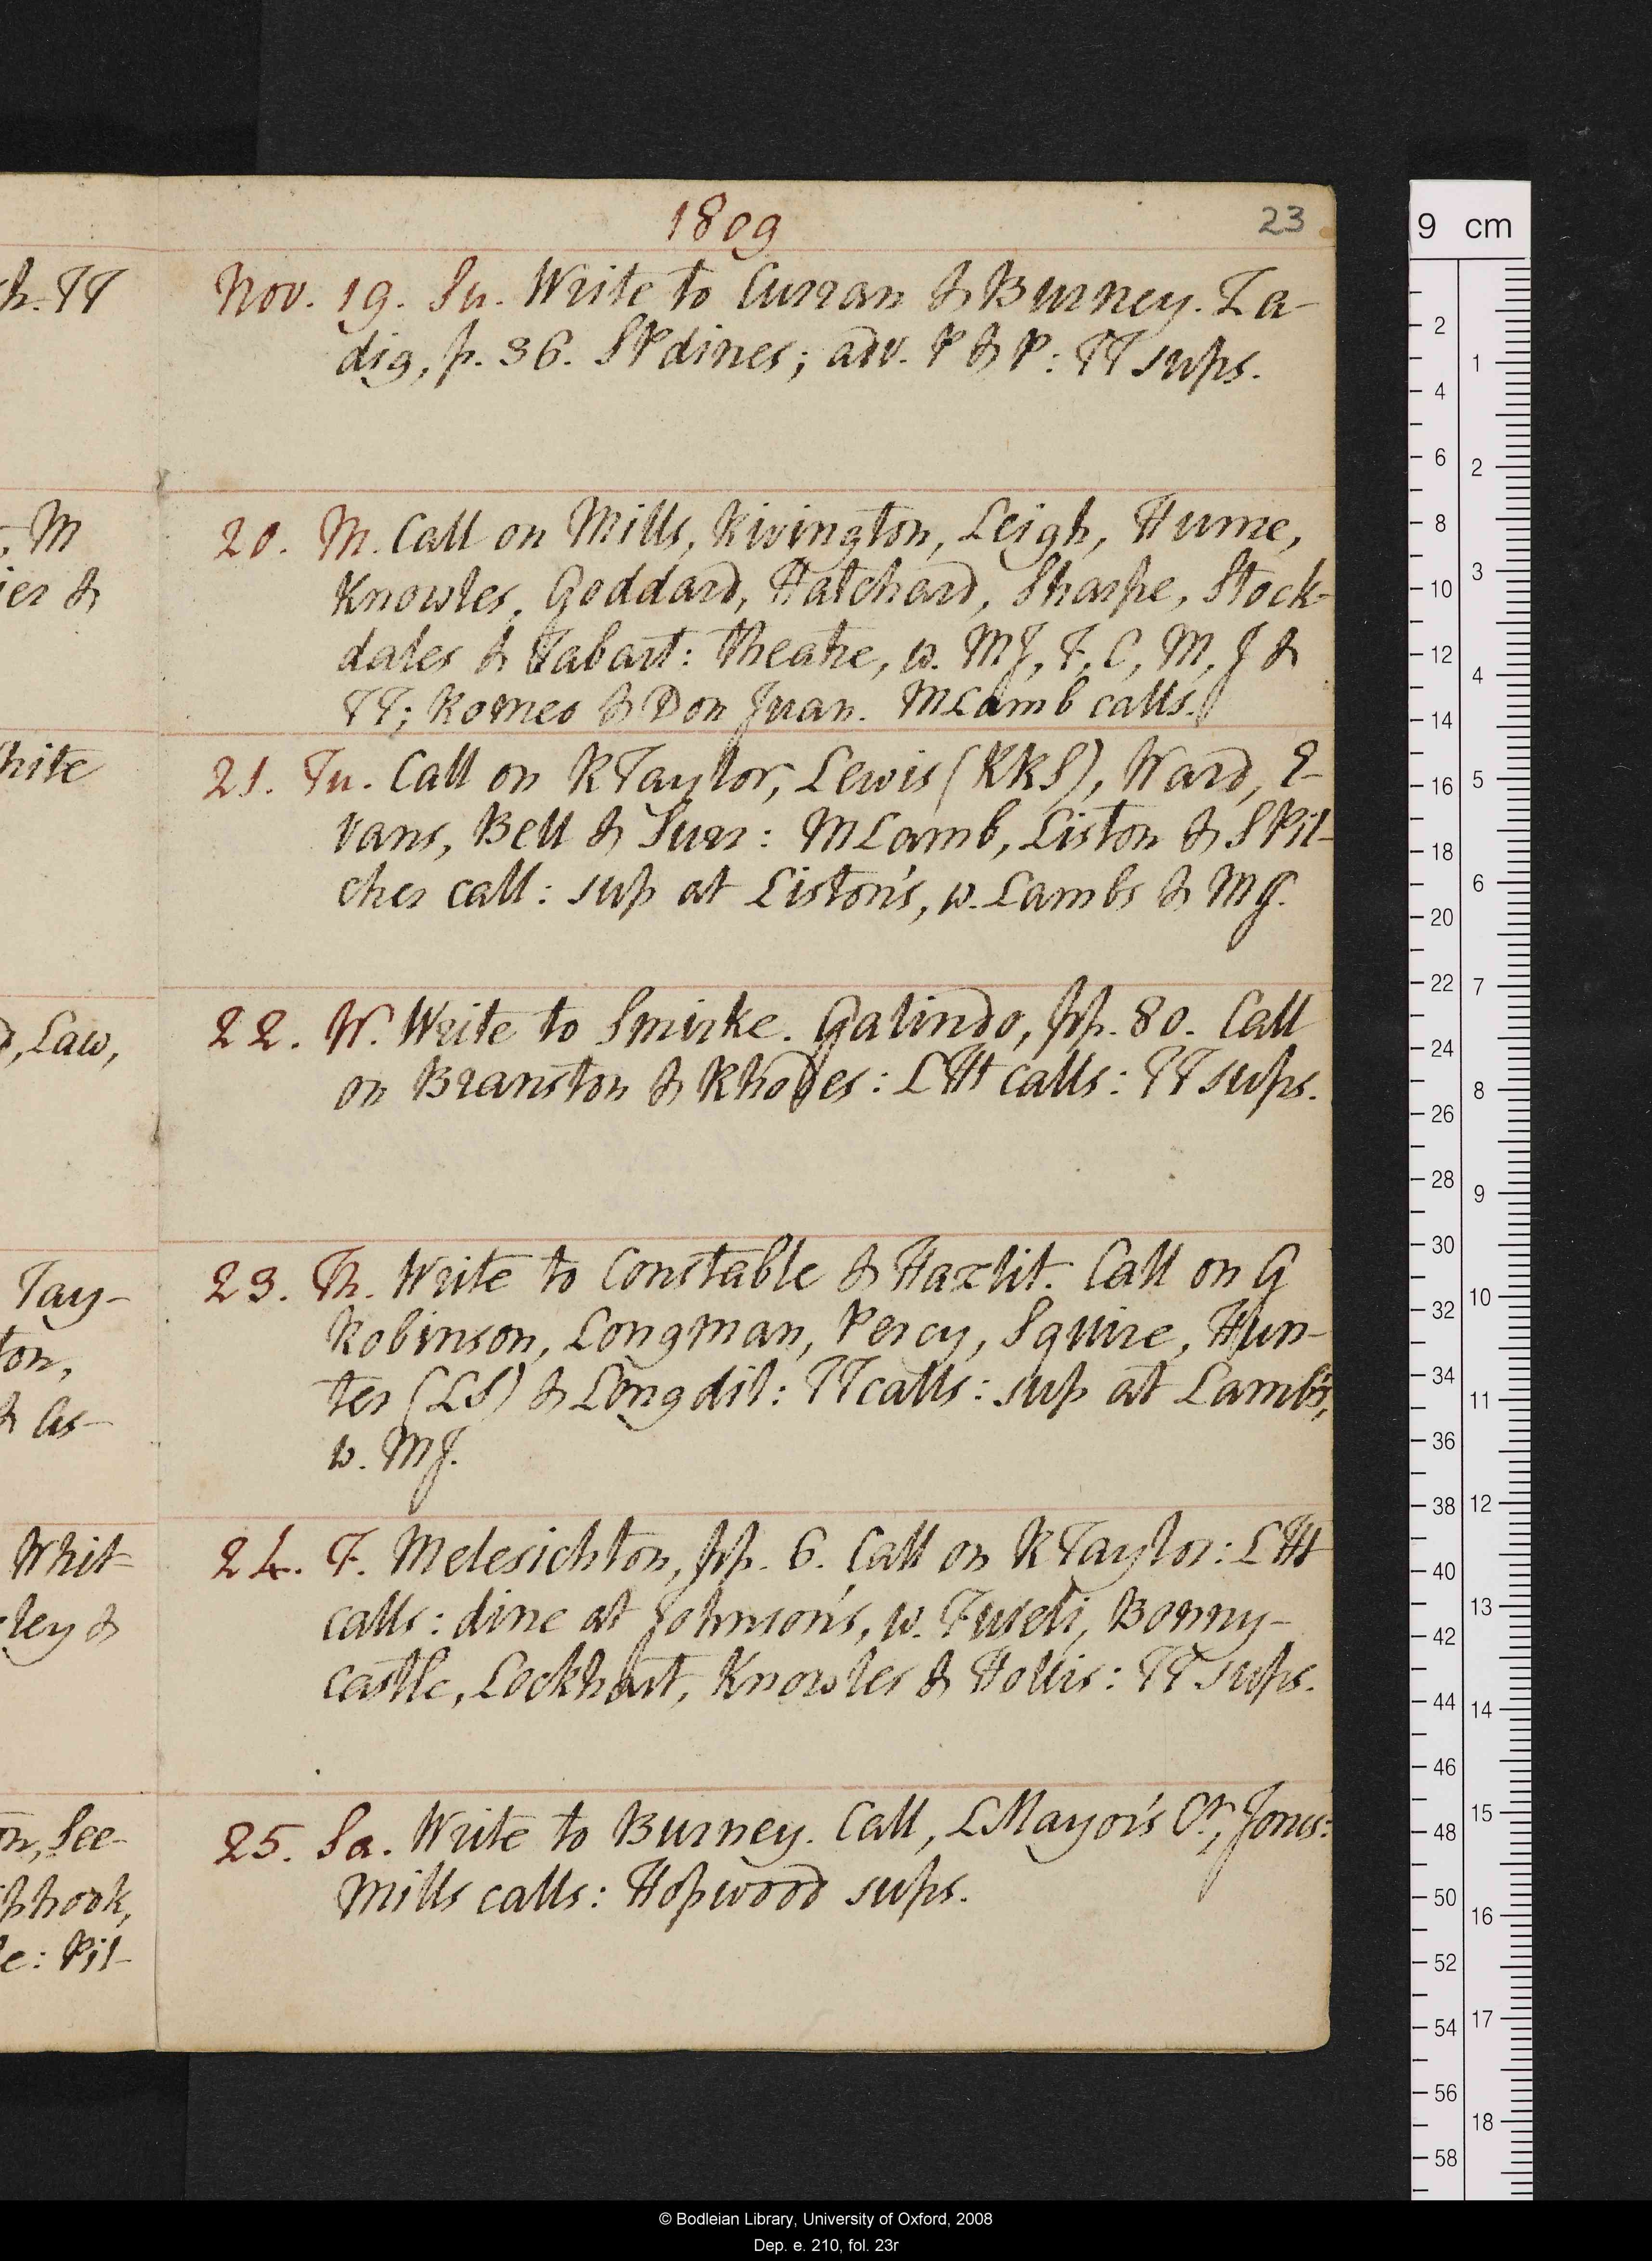 1809
23
Nov. 19. Su. Write to Curran & Burney. Za-
dig, p. 36. SP dines; adv. P & P: TT sups.
20. M. Call on Mills, Rivington, Leigh, Hume,
Knowles, Goddard, Hatchard, Sharpe, Stock-
dales & Tabart: theatre, w. MJ, F, C, M, J &
TT; Romeo & Don Juan. M Lamb calls.
21. Tu. Call on R Taylor, Lewis (KKS), Ward, E-
vans, Bell & Surr: M Lamb, Liston & S Pil-
cher call: sup at Liston's, w. Lambs & MJ.
22. W. Write to Smirke. Galindo, pp. 80. Call
on Branston & Rhodes: LHt calls: TT sups.
23. Th. Write to Constable & Hazlit. Call on G
Robinson, Longman, Percy, Squire, Hun-
ter (LS) & Longdil: TT calls: sup at Lamb's,
w. MJ.
24. F. Melesichton, pp. 6. Call on R Taylor: LHt
calls: dine at Johnson's, w. Fuseli, Bonny-
castle, Lockhart, Knowles & Hollis: TT sups.
25. Sa. Write to Burney. Call, L Mayor's Ct, Jones:
Mills calls: Hopwood sups.
h. TT
, M
ier &
hite
d, Law,
Tay-
ton,
& As-
Whit-
ley &
on, See-
phook,
le: Pil-
9 cm
2
4
6
8
10
12
14
16
18
20
22
24
26
28
30
32
34
36
38
40
42
44
46
48
50
52
54
56
58
1
2
3
4
5
6
7
8
9
10
11
12
13
14
15
16
17
18
© Bodleian Library, University of Oxford, 2008
Dep. e. 210, fol. 23r